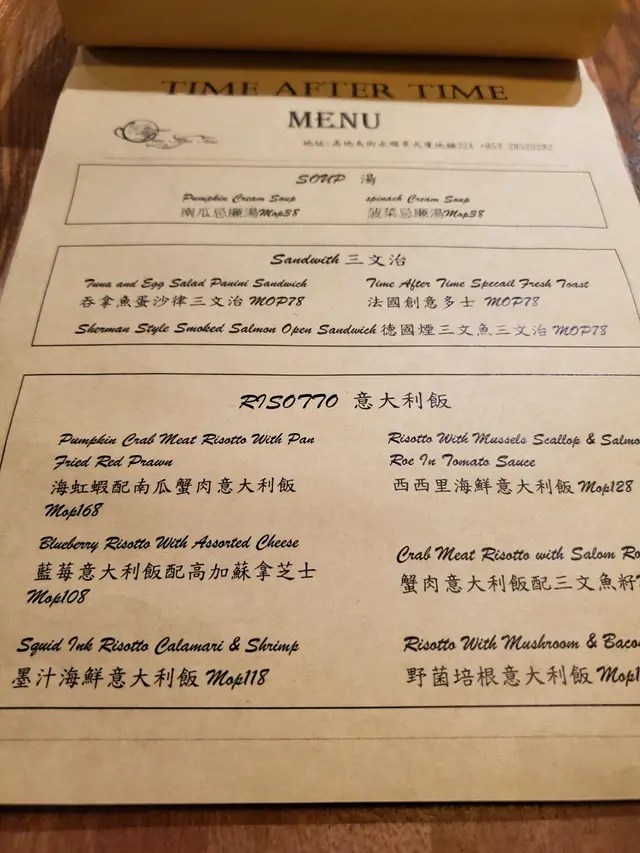 TIME AFTER TIME
MENU
地址:高地烏街永順業大廈地舖32A +853 28525292
SOUP 湯
Pumpkin Cream Soup
南瓜忌廉湯Mop38
spinach Cream Soup
菠菜忌廉湯Mop38
Sandwith 三文治
Tuna and Egg Salad Panini Sandwich
吞拿魚蛋沙律三文治 MOP78
Time After Time Specail Fresh Toast
法國創意多士 MOP78
Sherman Style Smoked Salmon Open Sandwich 德國煙三文魚三文治 MOP78
RISOTTO 意大利飯
Pumpkin Crab Meat Risotto With Pan
Fried Red Prawn
海虹蝦配南瓜蟹肉意大利飯
Mop168
Risotto With Mussels Scallop & Salmo
Roe In Tomato Sauce
西西里海鮮意大利飯 Mop128
Blueberry Risotto With Assorted Cheese
藍莓意大利飯配高加蘇拿芝士
Mop108
Crab Meat Risotto with Salom Ro
蟹肉意大利飯配三文魚籽
Squid Ink Risotto Calamari & Shrimp
墨汁海鮮意大利飯 Mop118
Risotto With Mushroom & Baco
野菌培根意大利飯 Mop1